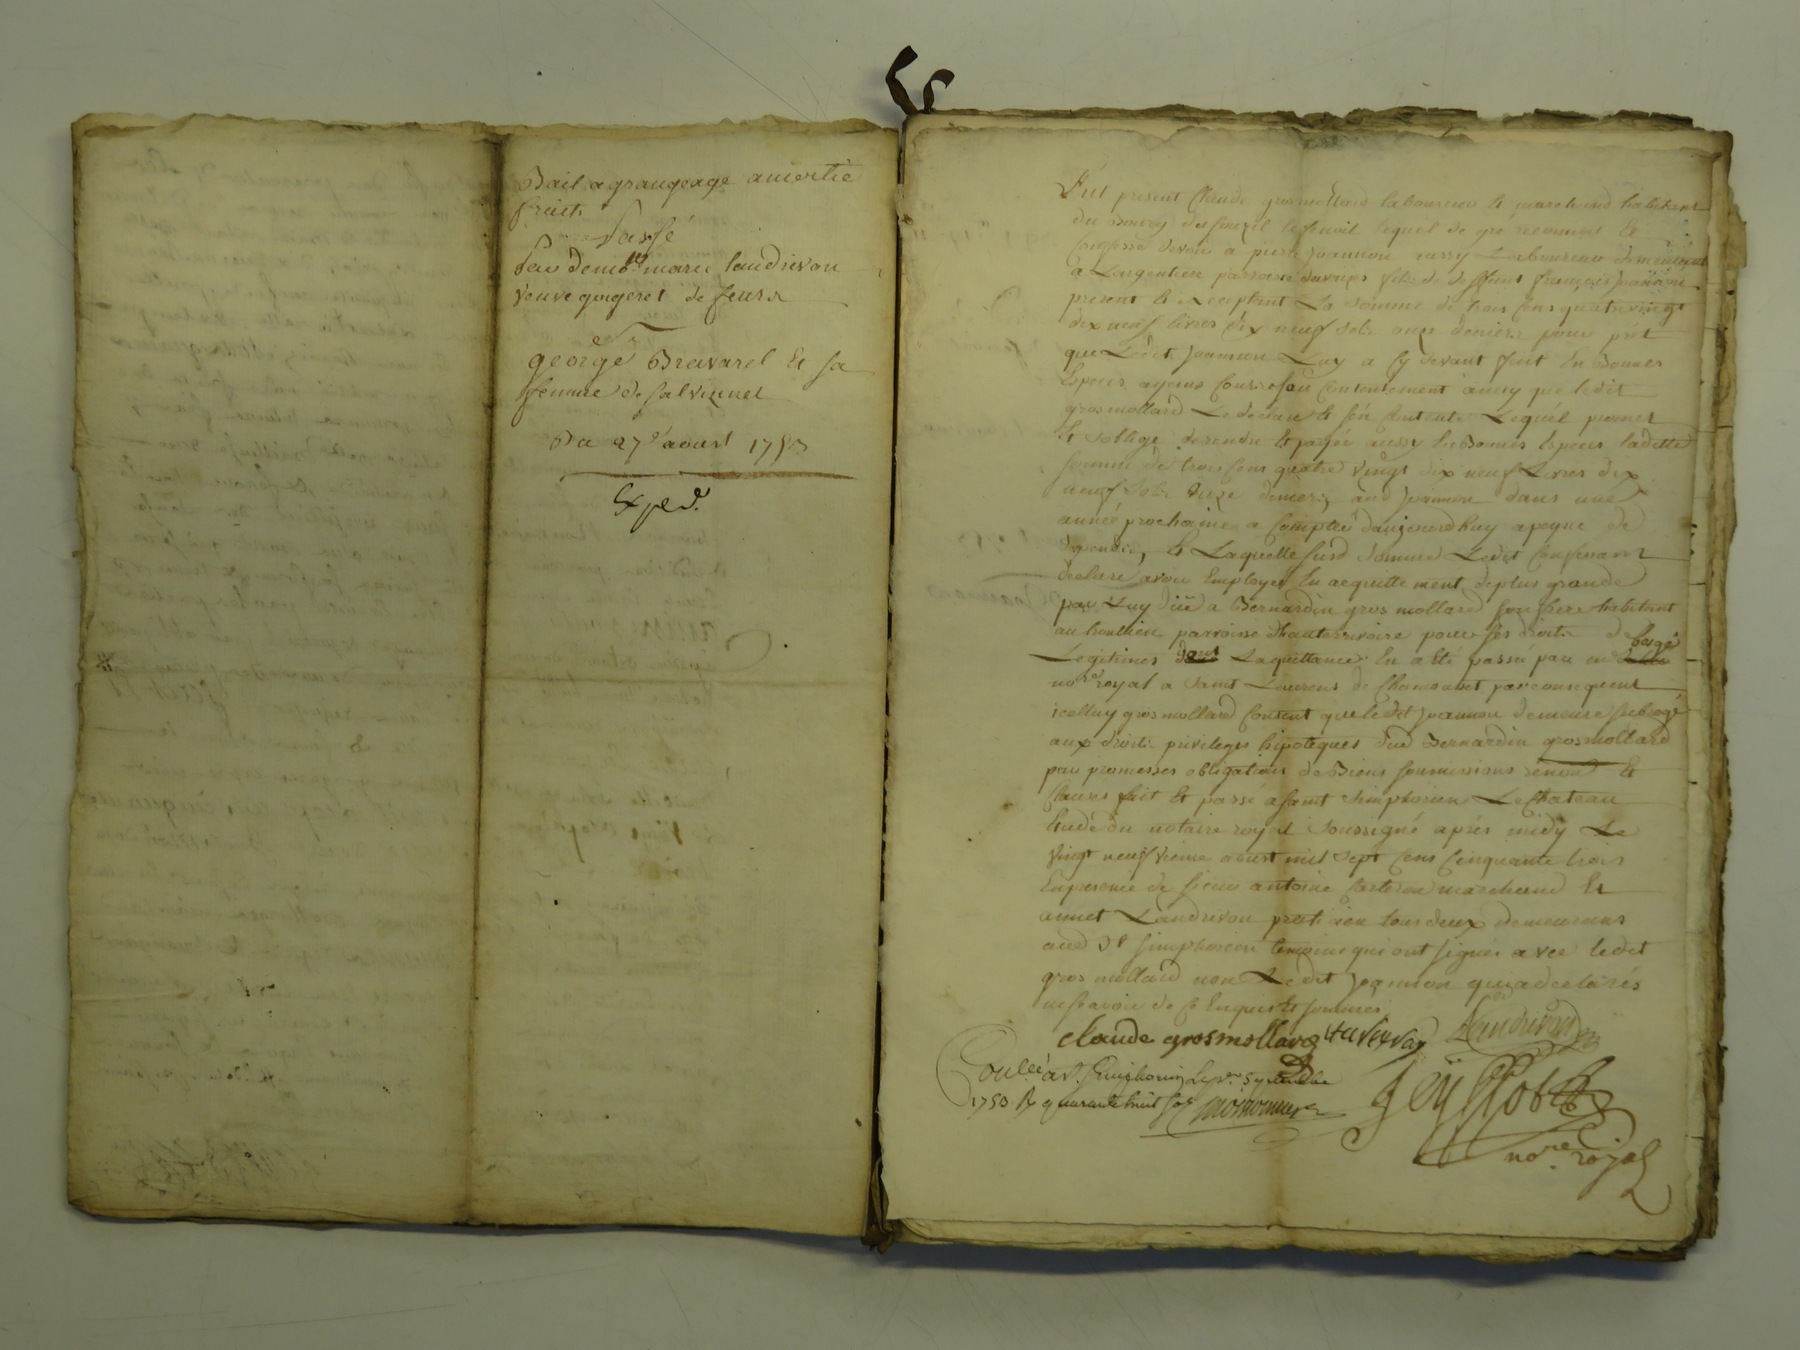 Bail a grangeage amoitié
fruits
Passé
Par demolle marie landrivon
veuve gongeret de feurs
a
george Bravarel Et sa
femme de salvizinet
Du 27e aoust 1753
Exped.
Fut present Claude grosmollard laboureur Et marchand habitant
du Bourg de lequel de gré reconnoit Et
Confesse devoir a pierre joannon aussy Laboureur demeurant
a Largentiere parroisse fils de deffunt françois joannon
present Et acceptant La somme de trois Cens quatre vingt
dix neuf livres dix neuf sols onze deniers pour prêt
que Ledit joannon Luy a Cy devant fait En Bonnes
Especes ayans Cours a son Contentement ainsy que ledit
grosmollard Le declare Et s'en Contente Lequel promet
Et s'oblige de rendre Et payer aussy En Bonnes Especes ladite
somme de trois Cens quatre vingt dix neuf Livres dix
neuf sols onze deniers aud joannon dans une
année prochaine a Compter d'aujourdhuy a peyne de
depends, Et Laquelle susd somme Ledit Confessant
declare avoir Employer En acquittement deplus grande
par Luy düe a Bernardin gros mollard son frere habitant
au parroisse d'hauterivoire pour ses droits de
Legitimes dont La quittance En a été passée par me bergé
nore royal a saint Laurens de Chamousset par consequent
icelluy gros mollard Consent que ledit joannon demeure subrogé
aux droits privileges hipoteques dud Bernardin grosmollard
par promesses obligations de Biens soumissions renonc Et
Clauses fait Et passé a saint simphorien Le Chateau
Etude du notaire royal soussigné après midy Le
vingt neufvieme aoust mil sept Cens Cinquante trois
En presence de sieur antoine marchand Et
annet Landrivon praticien tous deux demeurans
aud St simphorien temoins qui ont signés avec ledit
gros mollard non Ledit joannon qui a declarés
ne sçavoir de Ce Enquis Et sommés
claude grosmollard Landrivon
Conlé a St. Simphorien Le per septembre
1753 R quarante huit sols
nore royal